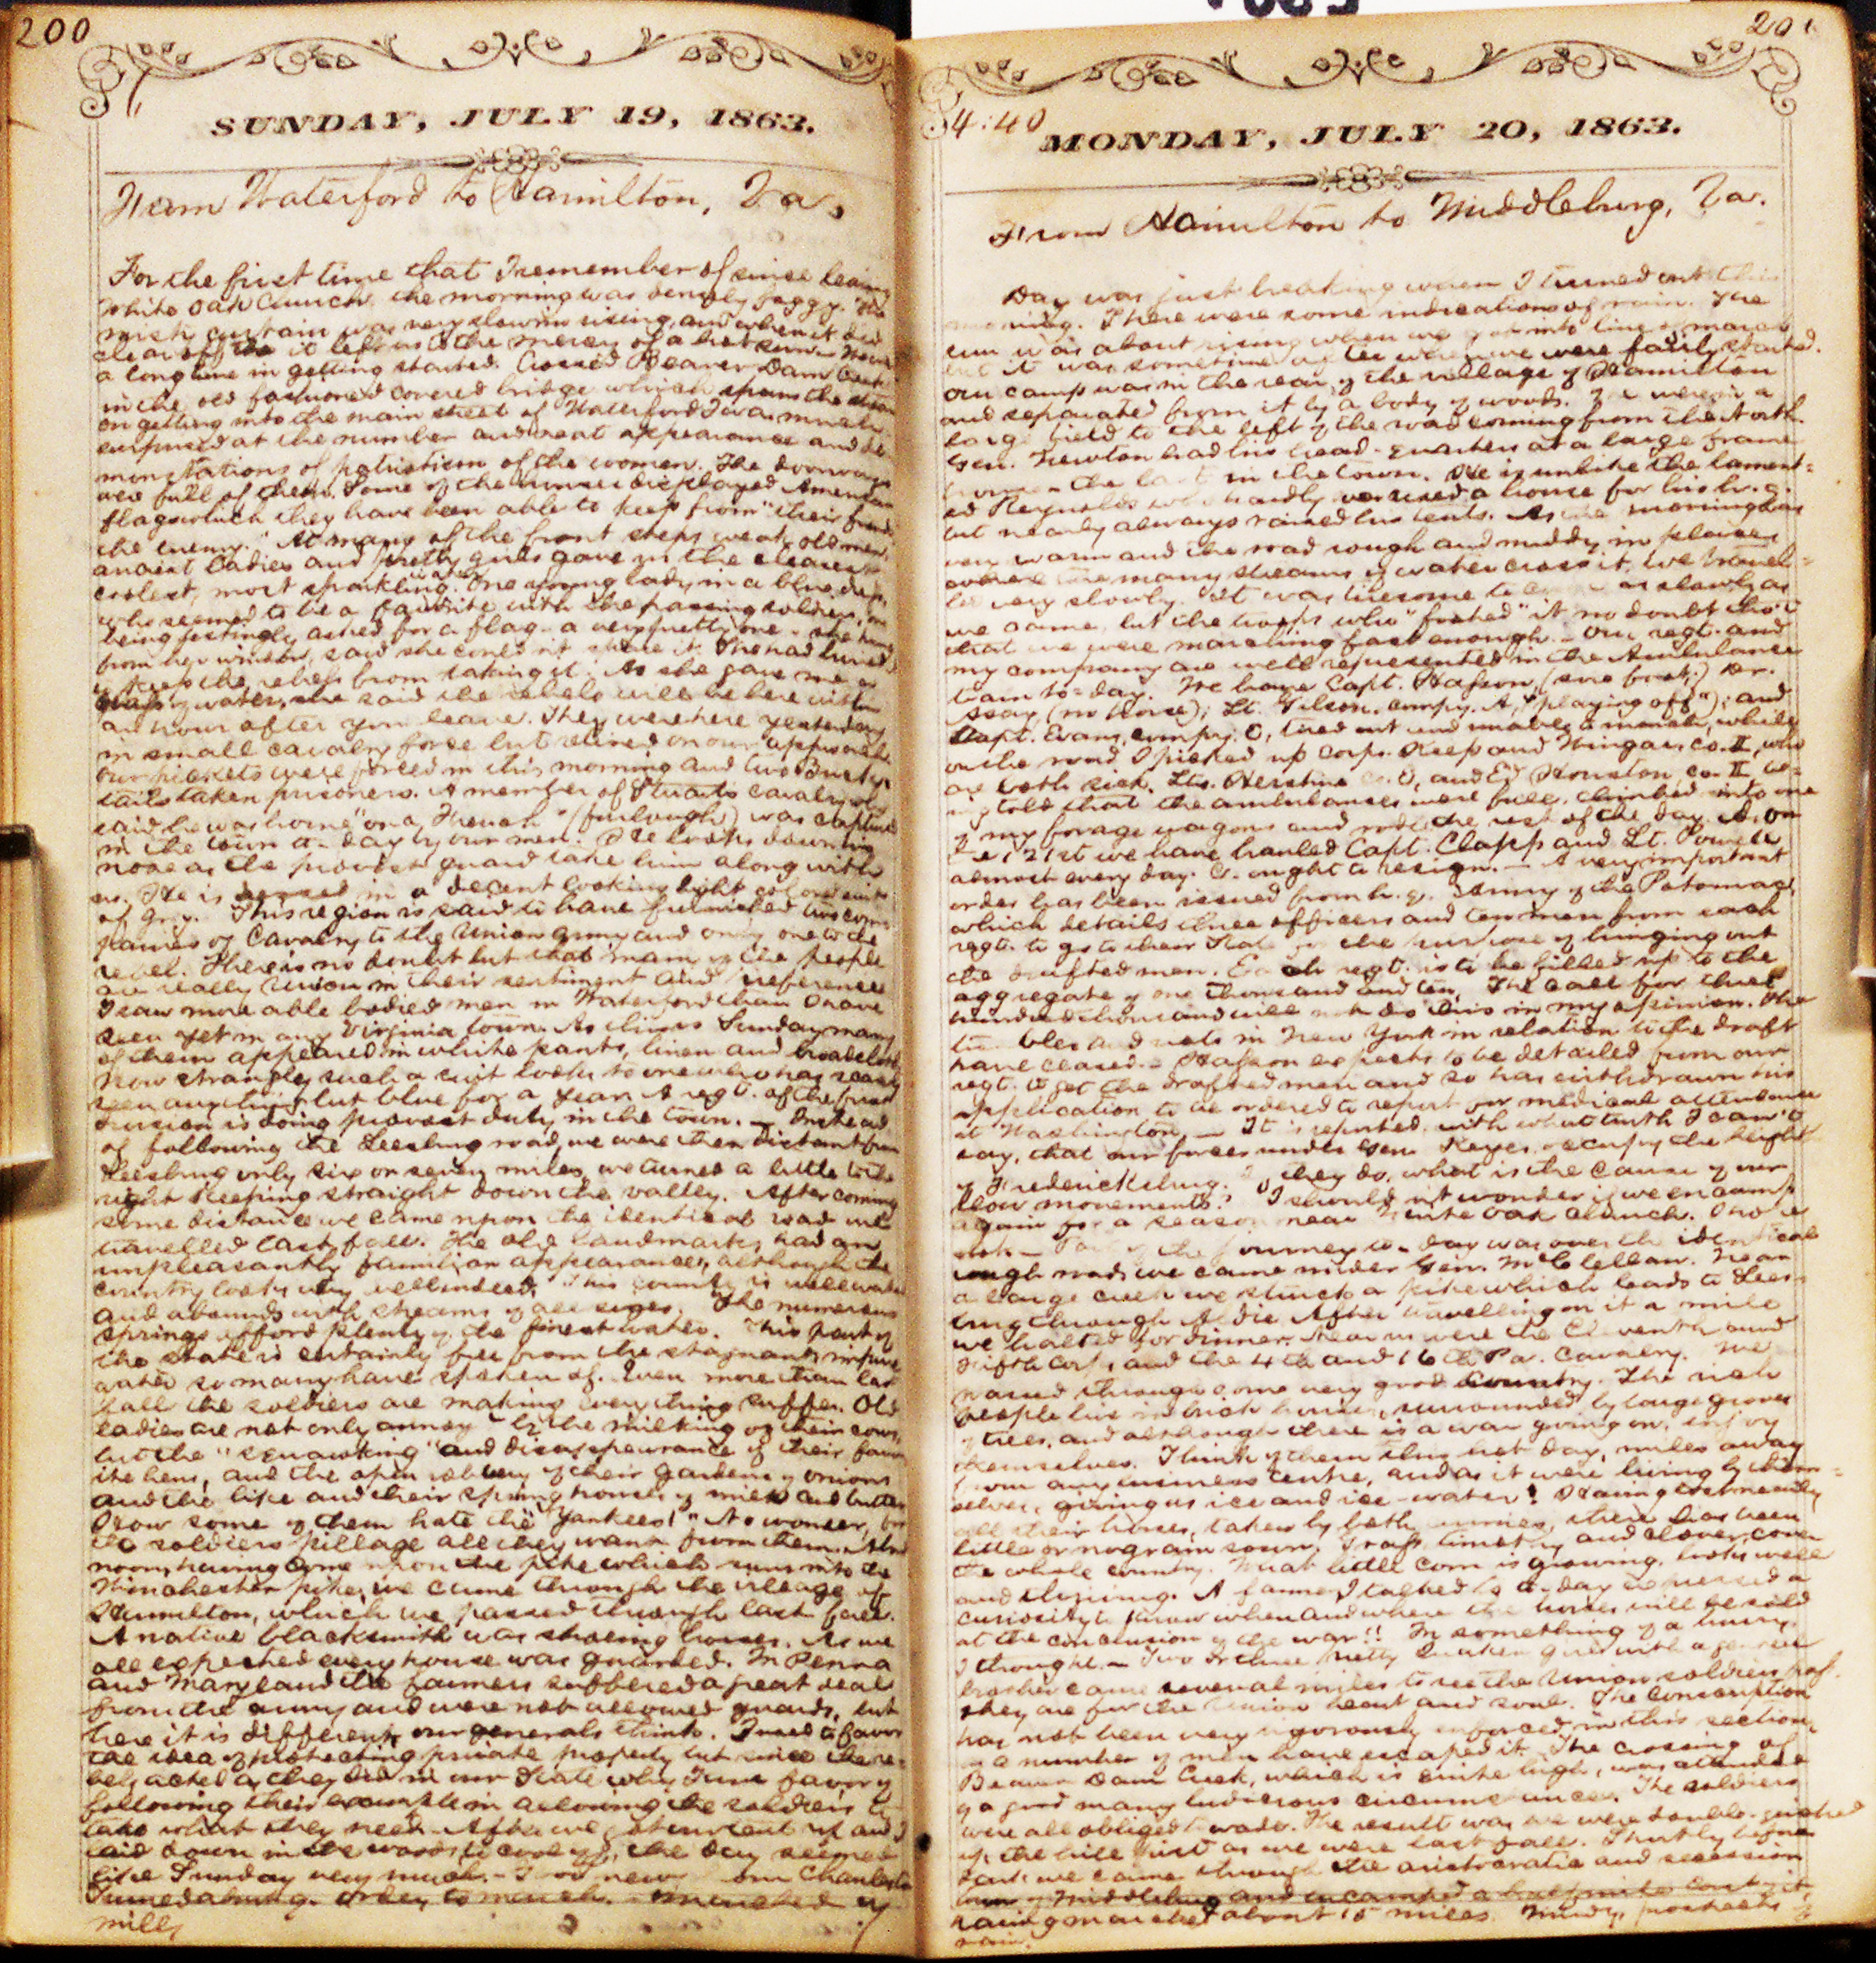 200
SUNDAY, JULY 19, 1863.
From Waterford to Hamilton, Va.
For the first time that I remember of since leaving
White Oak Church, the morning was densely foggy. The
mist curtain was very slow in rising, and when it did
clear off it left us to the mercy of a hot sun. Were
a long time in getting started. Crossed Beaver Dam Creek
in the old fashioned covered bridge which spans the stream
on getting into the main street of Waterford I was much
surprised at the number and neat appearance and de
monstrations of patriotism of the women. The doorways
were full of them. Some of the displayed American
flags which they have been able to keep from "their friends
the enemy." At many of the front steps were old men,
ancient ladies and pretty girls gave us the clearest
coolest, most sparkling water. One young lady in a blue dress,
who seemed to be a favorite with the passing soldiers, on
being jestingly asked for a flag - a very pretty one - she
from her window, said she could n't spare it. She had buried
to keep the rebels from taking it. As she gave me a
glass of water, she said the rebels will be here within
an hour after you leave. They were here yesterday
in small cavalry force but retired on our approach.
Our pickets were forced in this morning and two Buck-
tails taken prisoners. A member of Stuarts cavalry who
said he was home "on a French" (furlough) was captured
in the town to-day by our men. He looks down his
nose as the provost guard take him along with
us. He is in a decent looking light colored suit
of grey. This region is said to have furnished two com
panies of Cavalry to the Union army and only one to the
rebel. There is no doubt but that many of the people
are really Union in their sentiment and preferences
I saw more able bodied men in Waterford than I have
seen yet in any Virginia town. As this is Sunday many
of them appeared in white pants, linen and broadcloth
How strangely such a suit looks to one who has scarcely
seen anything but blue for a year. A regt. of the first
division is doing provost duty in the town. - Instead
of following the Leesburg road, we were then distant from
Leesburg only six or seven miles, we turned a little to the
right keeping straight down the valley. After coming
some distance we came upon the identical road we
travelled last fall. The old landmarks had an
unpleasantly familiar appearance, although the
country looks very well indeed. This county is well watered
and abounds with streams of all sizes. The numerous
springs afford plenty of the finest water. This part of
the state is certainly free from the stagnant, impure
water so many have spoken of. Even more than last
fall the soldiers are making everything suffer. Old
ladies are not only annoyed by the milking of their cows,
but the "squawking" and disappearance of their favor
ite hens, and the open robbery of their gardens of onions
and the like and their spring houses of milk and butter
How some of them hate the "Yankees!" No wonder, for
the soldiers pillage all they want from them. About
noon, having come upon the pike which runs into the
Winchester pike, we came through the village of
Hamilton, which we passed through last fall.
A native blacksmith was shoeing horses. As we
all expected every house was guarded. In Penna
and Maryland the farmers suffered a great deal
from the army and were not allowed guards, but
here it is different, our generals think. I used to favor
the idea of protecting private property but since the re-
bels acted as they did in our State why I am in favor of
following their example in allowing the soldiers to
take what they need. After we got our tent up and I
laid down in the woods to cool off, the day seemed
like Sunday very much. - news from Charleston
Marched
miles
201
4:40
MONDAY, JULY 20, 1863.
From Hamilton to Middleburg, Va.
Day was just breaking when I turned out this
morning. There were some indications of rain. The
sun was about rising when we got into line of march
but it was sometime after when we were fairly started.
Our camp was in the rear of the village of Hamilton
and separated from it by a body of woods. We were in a
large field to the left of the road coming from the North.
Gen. Newton had his head-quarters at a large frame
house - the last in the town. He is unlike the lament-
ed Reynolds who hardly ever used a house for his hr. q.
but nearly always raised his tents. As the morning was
very warm and the road rough and muddy in places
where the many streams of water cross it, we travel-
led very slowly. It was tiresome to as slowly as
we came, but the troops who "footed" it no doubt tho't
that we were marching fast enough. - Our regt. and
my company are well represented in the Ambulance
train to-day. We have Capt. Hasson, (sore foot;) Dr.
Asay (no horse); Lt. Gilson, compy. A, ("playing off"); and
Capt. Evans, compy. C, tired out and unable to march, while
on the road I picked up Corps. Keep and Wingar, co. II, who
are both sick. Lts. Herstine co. C, and Ed Houston, co. II, be-
ing told that the ambulances were full, climbed into one
of my forage wagons and rode the rest of the day. Of our
121st we have hauled Capt. Clapp and Lt. Powell
almost every day. C. ought to resign. - A very important
order has been issued from hr. q. Army of the Potomac,
which details three officers and ten men from each
regt. to go to their State for the purpose of bringing out
the drafted men. Each regt. is to be filled up to the
aggregate of one thousand and ten. The call for three
hundred thousand will not do this in my opinion. The
troubles and riots in New York in relation to the draft
have ceased. - Hasson expects to be detailed from our
regt. to get the drafted men and so has withdrawn his
application to be ordered to report for medical attendance
at Washington. - It is reported, with what truth I can't
say, that our forces under Gen. Keyes occupy the heights
of Fredericksburg. If they do, what is the cause of our
slow movements? I should not wonder if we encamp
again for a season near White Oak Church. I hope
not. - Part of the journey to-day was over the identical
rough roads we came under Gen. McClellan. Near
a large creek we struck a pike which leads to Lees-
burg through Aldie. After travelling on it a mile
we halted for dinner. Near us were the Eleventh and
Fifth Corps and the 4th and 16th Pa. Cavalry. We
passed through some very good country. The rich
people live in brick houses, surrounded by large groves
of trees, and although there is a war going on, enjoy
themselves. Think of them this hot day, miles away
from any business centre, and as it were living by them-
selves, giving us ice and ice-water! Having lost nearly
all their horses, taken by both armies, there has been
little or no grain sown. Grass, timothy and clover, cover
the whole country. What little corn is growing, looks well
and thriving. A farmer I talked to to-day expressed a
curiosity to know when and where the horses will be sold
at the conclusion of the war!! In something of a hurry,
I thought. - Two or three pretty Quaker girls with a
brother came several miles to see the Union soldiers pass.
They are for the Union heart and soul. The Conscription
has not been very rigorously enforced in this section,
as a number of men have escaped it. The crossing of
Beaver Dam Creek, which is quite high, was attended
by a good many ludicrous circumstances. The soldiers
were all obliged to wade. The result was we were double-quicked
up the hill just as we were last fall. Shortly before
dark we came through the aristocratic and secession
town of Middleburg and encamped a half mile it,
having marched about 15 miles. Windy, prospects of
rain.